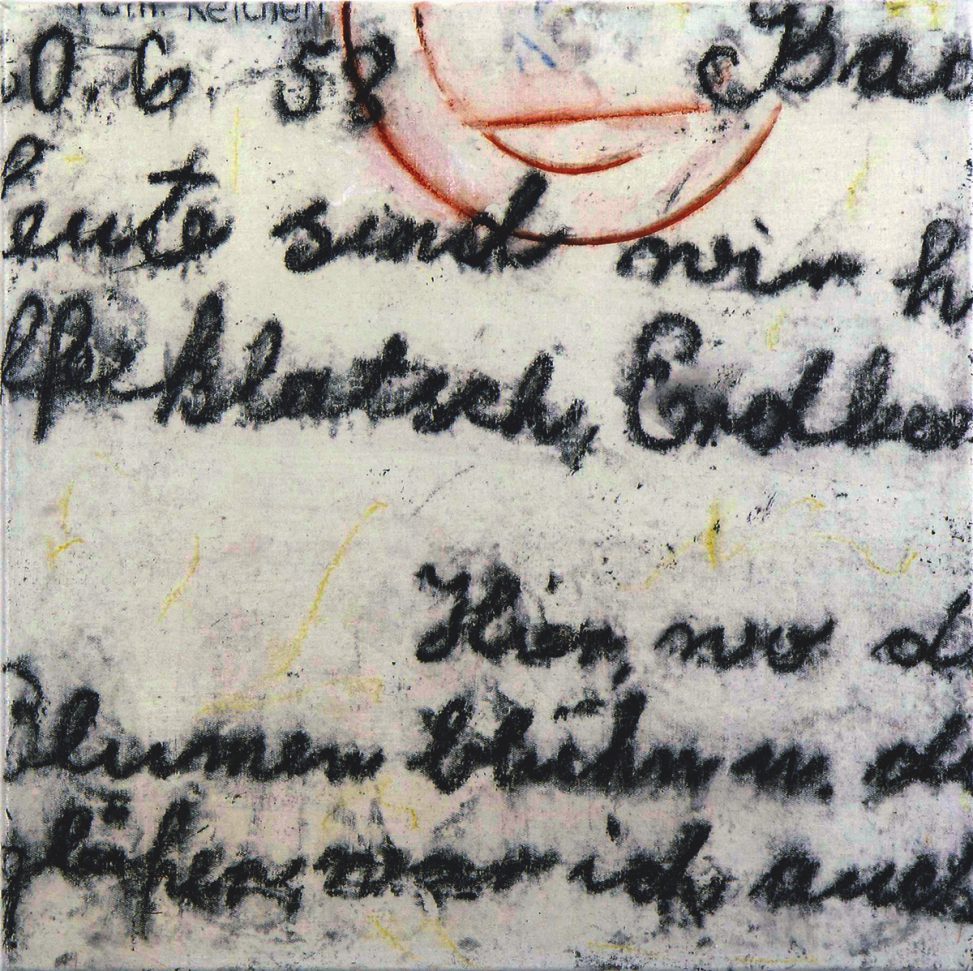 Reichen
0. 6. 58 Bad
eute sind wir h
klatsch, Erdbee
Hier, wo d
Blumen blühn u. di
war ich auch